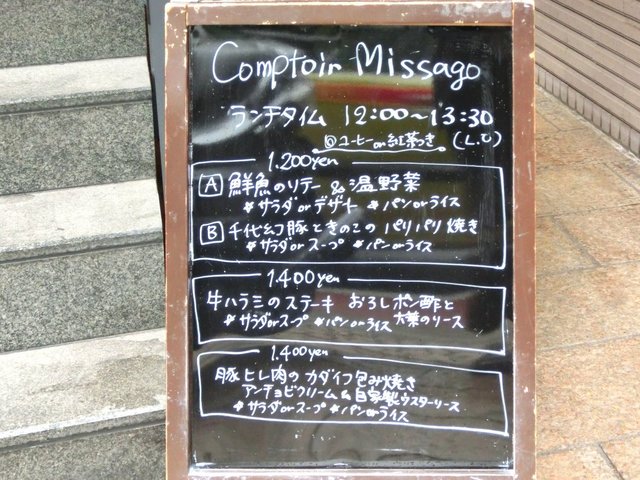 Comptoir Missago
ランチタイム 12:00〜13:30
◎コーヒー or 紅茶つき (L.O)
1.200yen
A 鮮魚のソテー & 温野菜
#サラダ or デザート #パン or ライス
B 千代幻豚ときのこの パリパリ焼き
#サラダ or スープ #パン or ライス
1.400yen
牛ハラミのステーキ おろしポン酢と
大葉のソース
#サラダ or スープ #パン or ライス
1.400yen
豚ヒレ肉の カダイフ包み焼き
アンチョビクリーム & 自家製ウスターソース
#サラダ or スープ #パン or ライス